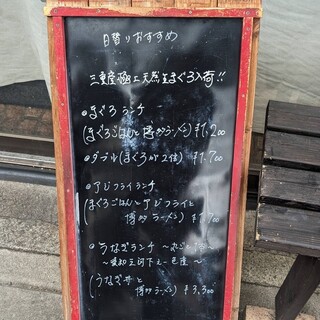 日替りおすすめ
三重産極上天然生まぐろ入荷!!
●まぐろランチ
(まぐろごはんと博多ラーメン) ¥1,200
●ダブル(まぐろが2倍) ¥1,700
●アジフライランチ
(まぐろごはんとアジフライと
博多ラーメン)
●うなぎランチ
〜愛知三河下え一色産〜
(うなぎ丼と
博多ラーメン) ¥3,300